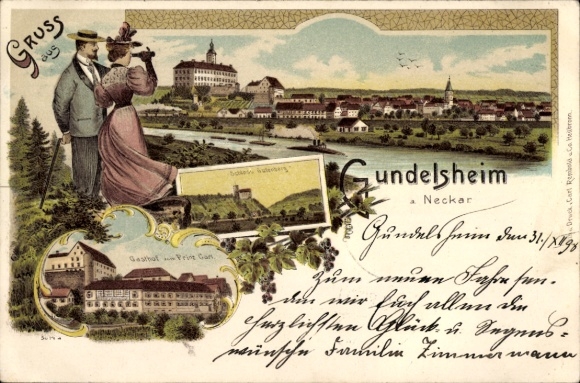 GRUSS
aus
Gundelsheim
a. Neckar
Schloss Guttenberg
Gasthof zum Prinz Carl
Gundelsheim den 31./XII 98
Zum neuen Jahre sen-
den wir Euch allen die
herzlichsten Glück u. Segens-
wünsche Familie Zimmermann
u. Druck v. Carl Rembold & Co. Heilbronn.